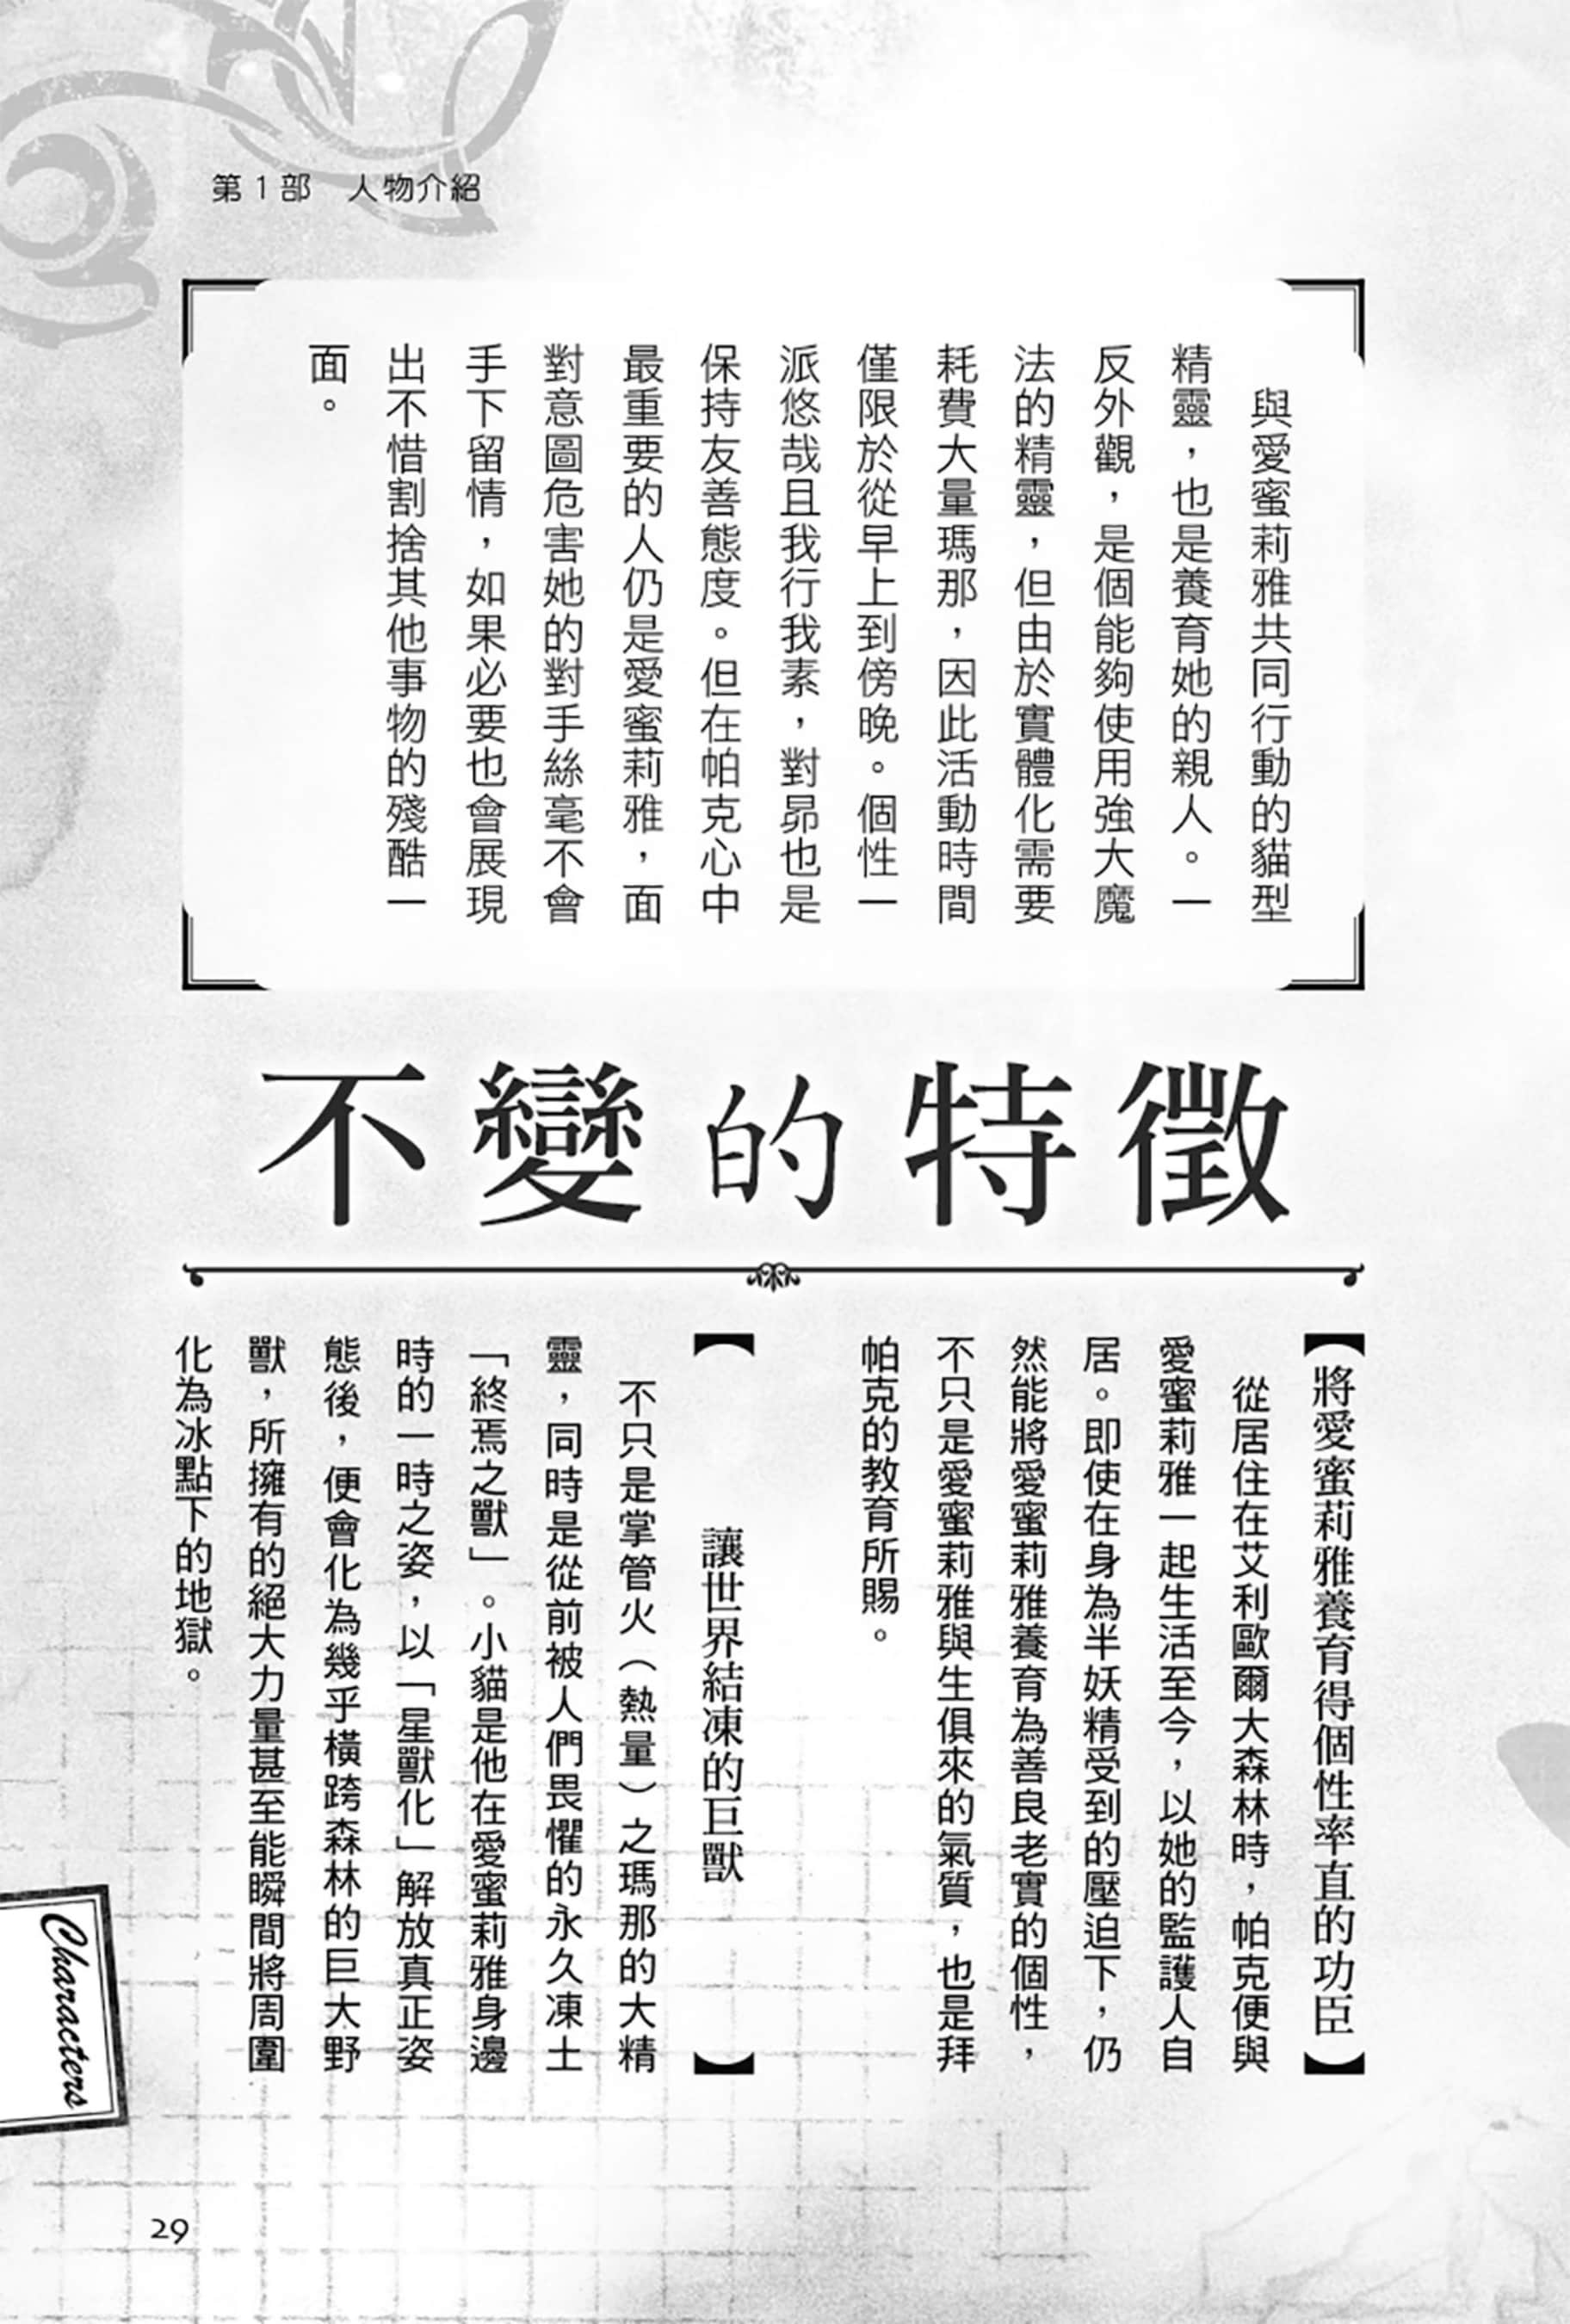 第1部　人物介紹
與愛蜜莉雅共同行動的貓型
精靈，也是養育她的親人。一
反外觀，是個能夠使用強大魔
法的精靈，但由於實體化需要
耗費大量瑪那，因此活動時間
僅限於從早上到傍晚。個性一
派悠哉且我行我素，對昴也是
保持友善態度。但在帕克心中
最重要的人仍是愛蜜莉雅，面
對意圖危害她的對手絲毫不會
手下留情，如果必要也會展現
出不惜割捨其他事物的殘酷一
面。
不變的特徵
【將愛蜜莉雅養育得個性率直的功臣】
從居住在艾利歐爾大森林時，帕克便與
愛蜜莉雅一起生活至今，以她的監護人自
居。即使在身為半妖精受到的壓迫下，仍
然能將愛蜜莉雅養育為善良老實的個性，
不只是愛蜜莉雅與生俱來的氣質，也是拜
帕克的教育所賜。
【讓世界結凍的巨獸】
不只是掌管火（熱量）之瑪那的大精
靈，同時是從前被人們畏懼的永久凍土
「終焉之獸」。小貓是他在愛蜜莉雅身邊
時的一時之姿，以「星獸化」解放真正姿
態後，便會化為幾乎橫跨森林的巨大野
獸，所擁有的絕大力量甚至能瞬間將周圍
化為冰點下的地獄。
Characters
29